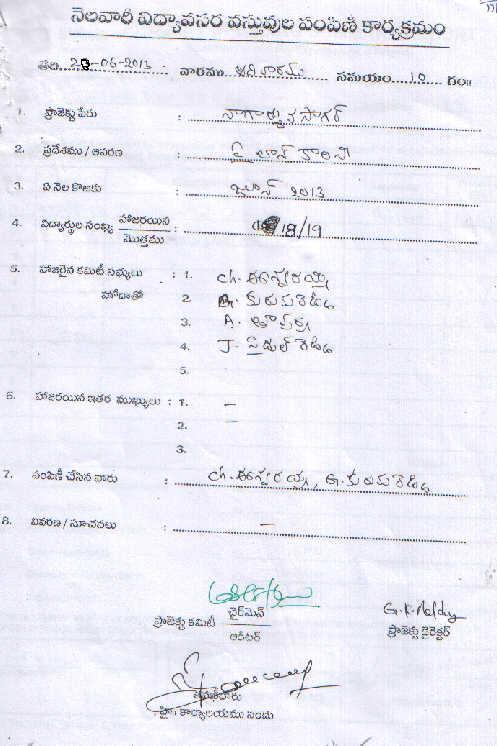 నెలవారీ విద్యావసర వస్తువుల పంపిణీ కార్యక్రమం
తేది 20-06-2013 వారము సమయం 10 గం॥
1. ప్రాజెక్టు పేరు : నాగార్జున సాగర్
2. ప్రదేశము / ఆవరణ : పైలాన్ కాలనీ
3. ఏ నెల కొఱకు : జూన్ 2013
4. విద్యార్థుల సంఖ్య హాజరయిన / మొత్తము : 18/19
5. హాజరైన కమిటీ సభ్యులు : 1. Ch. ఈశ్వరయ్య
హోదాతో 2.
3. A.
4. J.
5.
6. హాజరయిన ఇతర ముఖ్యులు : 1. –
2. –
3.
7. పంపిణీ చేసిన వారు : Ch. ఈశ్వరయ్య,
8. వివరణ / సూచనలు : –
ప్రాజెక్టు కమిటీ ఛైర్మెన్
ఆడిటర్
G.K. Reddy
ప్రాజెక్టు డైరెక్టర్
కార్యాలయము నందు